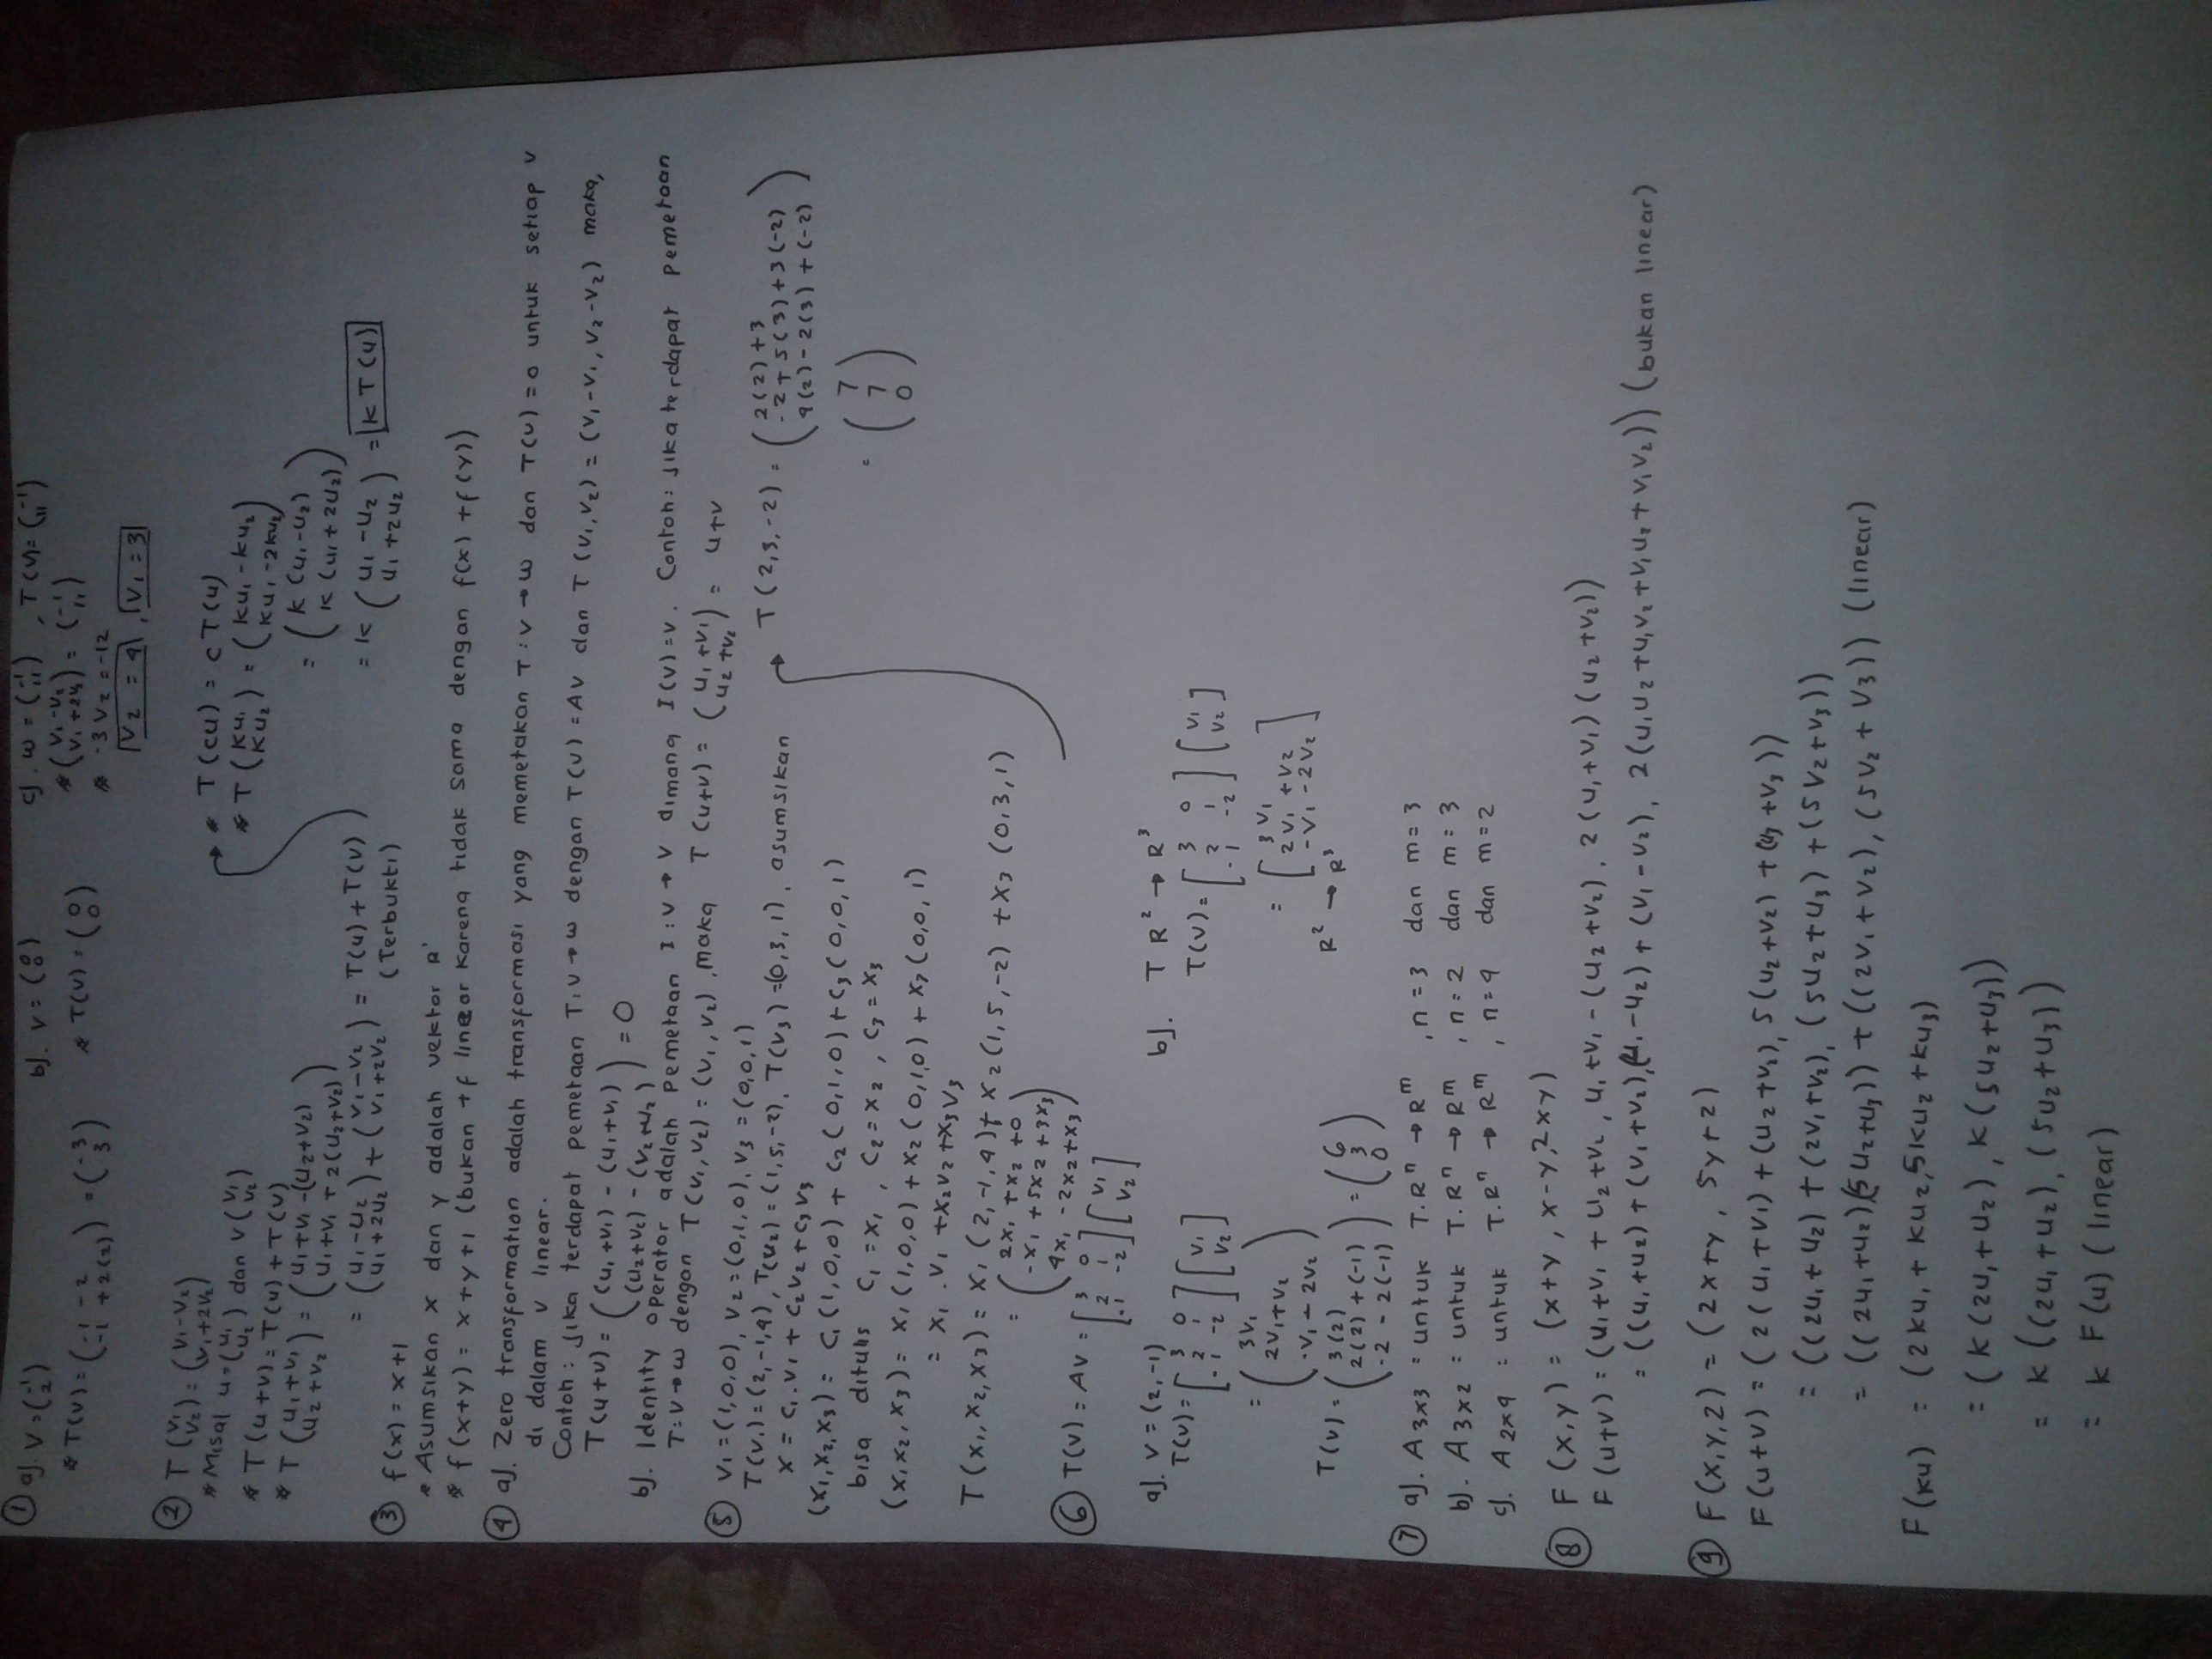 ① a). V = (-1 2)
* T(V) = (-1 -2 -1 +2(2)) = (-3 3)
b). V = (0 0)
* T(V) = (0 0)
c). w = (-1 11) , T(V) = (-1 11)
* (V₁-V₂ V₁+2V₂) = (-1 11)
* -3V₂ = -12
V₂ = 4 , V₁ = 3
② T (V₁ V₂) = (V₁-V₂ V₁+2V₂)
* Misal u = (u₁ u₂) dan V (V₁ V₂)
* T(u+v) = T(u) + T(v)
* T (u₁+v₁ u₂+v₂) = (u₁+v₁ -(u₂+v₂) u₁+v₁ + 2(u₂+v₂))
= (u₁-u₂ u₁+2u₂) + (v₁-v₂ v₁+2v₂) = T(u) + T(v)
(Terbukti)
* T(cu) = c T(u)
* T (ku₁ ku₂) = (ku₁ - ku₂ ku₁ -2ku₂)
= (k (u₁-u₂) k (u₁+2u₂))
= k (u₁ -u₂ u₁ +2u₂) = k T(u)
③ f(x) = x+1
* Asumsikan x dan y adalah vektor R'
* f(x+y) = x+y+1 (bukan tf linear karena tidak sama dengan f(x) +f(y))
④ a). Zero transformation adalah transformasi yang memetakan T : V → W dan T(v) = 0 untuk setiap v
di dalam v linear.
Contoh : Jika terdapat pemetaan T: V → W dengan T(V) = AV dan T (V₁,V₂) = (V₁-V₁, V₂-V₂) maka,
T(u+v) = ((u₁+v₁) - (u₁+v₁) (u₂+v₂) - (v₂+u₂)) = 0
b). Identity operator adalah pemetaan I : V → V dimana I(V) = v. Contoh: Jika terdapat pemetaan
T: V → W dengan T(V₁,V₂) = (V₁,V₂) ,maka T (u+v) = (u₁ +v₁ u₂ +v₂) = u+v
⑤ V₁ = (1,0,0), V₂ = (0,1,0), V₃ = (0,0,1)
T(V₁) = (2,-1,4), T(V₂) = (1,5,-2), T(V₃) = (0,3,1), asumsikan
x = c₁.v₁ + c₂v₂ + c₃v₃
(x₁,x₂,x₃) = c₁(1,0,0) + c₂(0,1,0) + c₃(0,0,1)
bisa ditulis c₁ = x₁ , c₂ = x₂ , c₃ = x₃
(x₁x₂,x₃) = x₁(1,0,0) + x₂(0,1,0) + x₃(0,0,1)
= x₁ .v₁ +x₂v₂ +x₃v₃
T(x₁,x₂,x₃) = x₁ (2,-1,4) + x₂(1,5,-2) + x₃ (0,3,1)
= (2x₁ +x₂ +0 -x₁ +5x₂ +3x₃ 4x₁ -2x₂+x₃)
T(2,3,-2) = (2(2) +3 -2 + 5(3) +3(-2) 4(2) - 2(3) + (-2))
= (7 7 0)
⑥ T(V) = AV = [3 0 2 1 -1 -2] [V₁ V₂]
a). V = (2,-1)
T(V) = [3 0 2 1 -1 -2] [V₁ V₂]
= (3V₁ 2V₁+V₂ -V₁ - 2V₂)
T(V) = (3(2) 2(2) +(-1) -2 - 2(-1)) = (6 3 0)
b). T R² → R³
T(V) = [3 0 2 1 -1 -2] [V₁ V₂]
= [3V₁ 2V₁ +V₂ -V₁ -2V₂]
R² → R³
⑦ a). A 3x3 = untuk T. Rⁿ → Rᵐ , n = 3 dan m = 3
b). A 3x2 = untuk T. Rⁿ → Rᵐ , n = 2 dan m = 3
c). A 2x4 = untuk T. Rⁿ → Rᵐ , n = 4 dan m = 2
⑧ F (x,y) = (x+y , x-y, 2xy)
F (u+v) = (u₁+v₁ + u₂+v₂ , u₁+v₁ - (u₂+v₂), 2(u₁+v₁)(u₂+v₂))
= ((u₁+u₂) + (v₁+v₂), (u₁-u₂) + (v₁-v₂), 2(u₁u₂+u₁v₂+v₁u₂+v₁v₂)) (bukan linear)
⑨ F(x,y,z) = (2x+y , 5y+z)
F(u+v) = (2(u₁+v₁) + (u₂+v₂), 5(u₂+v₂) + (u₃+v₃))
= ((2u₁+u₂) + (2v₁+v₂), (5u₂+u₃) + (5v₂+v₃))
= ((2u₁+u₂)(5u₂+u₃)) + ((2v₁+v₂), (5v₂+v₃)) (linear)
F(ku) = (2ku₁ + ku₂, 5ku₂ + ku₃)
= (k(2u₁+u₂), k(5u₂+u₃))
= k ((2u₁+u₂), (5u₂+u₃))
= k F(u) (linear)